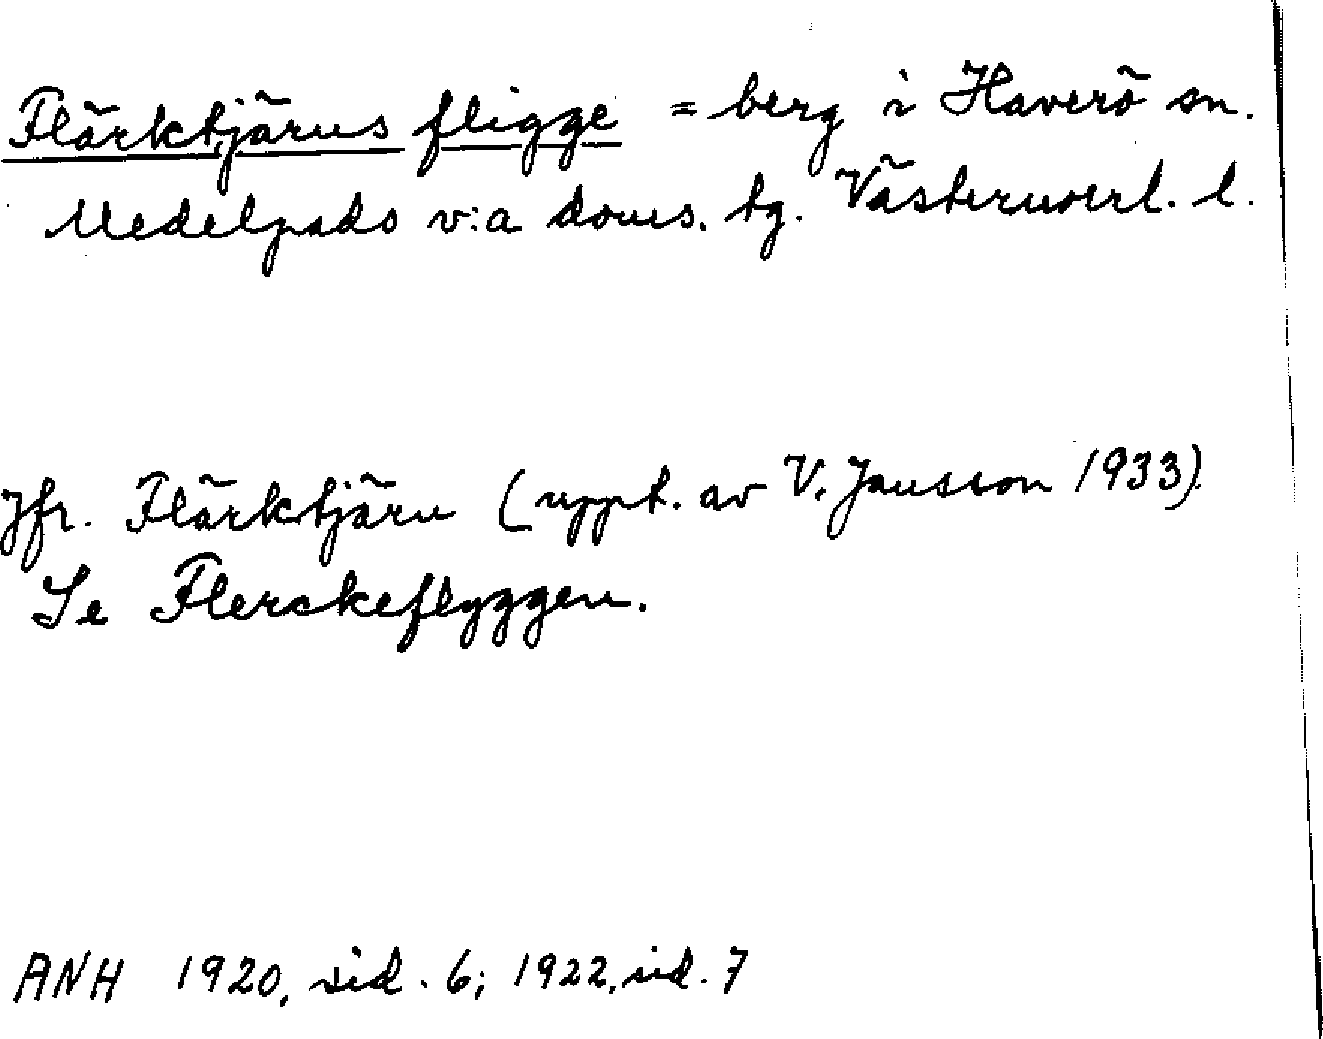 Flärktjärns fligge = berg i Haverö sn.
Medelpads v:a doms. tg. Västernorrl. l.
Jfr. Flärktjärn (uppt. av V. Jansson 1933).
Se Flerckeflyggen.
ANH 1920, sid. 6; 1922, sid. 7